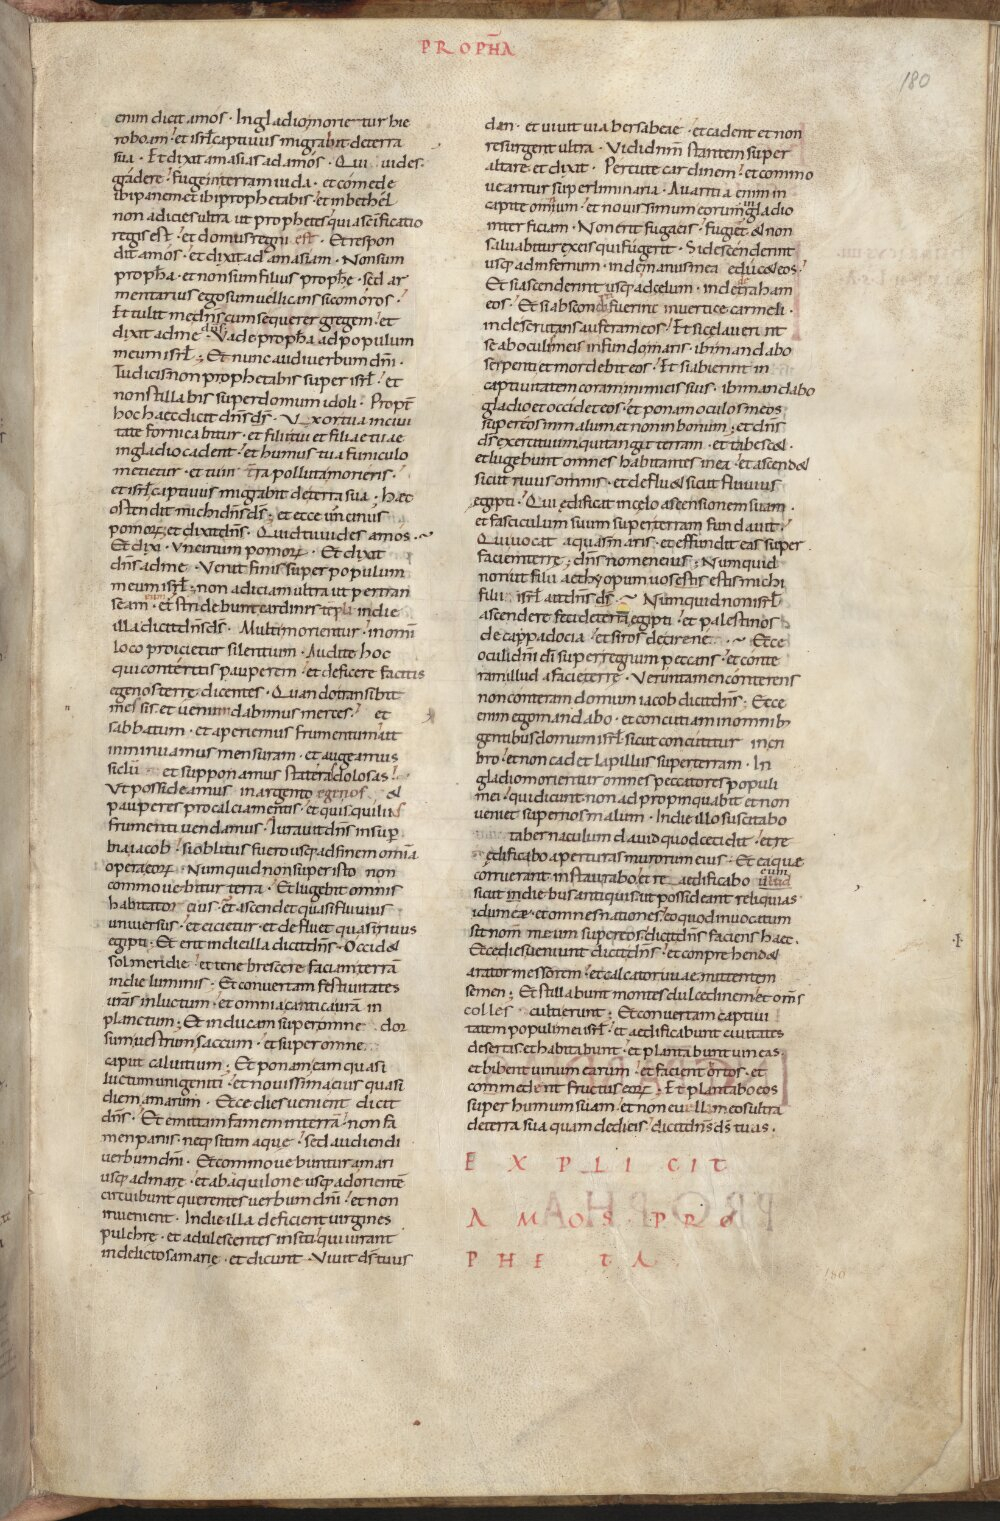 PROPHA
180
enim dicit amós · In gladio morie tur hie
roboam · et isrł captiuus migrabit de terra
sua · Et dixit amasias ad amós · Qui uides
gradere · fuge in terram iuda · et comede
ibi panem et ibi prophetabis · et in bethel
non adicies ultra ut prophetes qui a sc̄ificatio
regis est · et domus regni est · Et respon
dit amós · et dixit ad amasiam · Non sum
propħa · et non sum filius prophe̅ · sed ar
mentarius ego sum uellicans sicomóros ·
Et tulit me dn̄s cum sequerer gregem · et
dixit ad me dn̄s · Vade propħa ad populum
meum isrł ; Et nunc audi uerbum dn̄i ·
Tu dicis non prophetabis super isrł · et
non stilla bis super domum idoli · Propt̄
hoc haec dicit dn̄s ds̄ · Vxor tua in ciui
tate fornicabitur · et filii tui et filiae tuae
in gladio cadent · et humus tua funiculo
metietur · et tu in tr̄a polluta morieris ·
et isrł captiuus migrabit de terra sua · haec
ostendit michi dn̄s ds̄ ; et ecce uncinus
pomorꝝ et dixit dn̄s · Quid tu uides amos ·
Et dixi · Vncinum pomorꝝ · Et dixit
dn̄s ad me · Venit finis super populum
meum isrł ; non adiciam ultra ut pertran
seam · et stridebunt cardines tēpli in die
illa dicit dn̄s ds̄ · Multi morientur · in omi
loco proicietur silentium · Audite hoc
qui conteritis pauperem · et deficere facitis
egenos terre̅ dicentes · Quando transibit
mēsis et uenundabimus merces · et
sabbatum · et aperiemus frumentum ut
imminuamus mensuram · et augeamus
siclū et supponamus stateras dolosas ·
Vt possideamus in argento egenos &
pauperes pro calciamentis · et quisquilias
frumenti uendamus · Iurauit dn̄s in sup
bia iacob · si oblitus fuero usq; ad finem omia
opera eorꝝ · Numquid non super isto non
commouebitur terra · Et lugebit omnis
habitator eius · et ascendet quasi fluuius
uniuersus · et eicietur · et defluet quasi riuus
egipti · Et erit in die illa dicit dn̄s · Occid&
sol meridie · et tenebrescere faciam terrā
in die luminis · Et conuertam festiuitates
uras in luctum · et omnia cantica ura̅ in
planctum ; Et inducam super omne dor
sum uestrum saccum · et super omne
caput caluitium ; Et ponam eam quasi
luctum unigeniti · et nouissima eius quasi
diem amarum · Ecce dies uenient dicit
dn̄s · Et emittam famem in terrā · non fa
mem panis · neq; sitim aque · sed audiendi
uerbum dn̄i · Et commouebuntur a mari
usq; ad mare · et ab aquilone usq; ad orientē
circuibunt querentes uerbum dn̄i · et non
inuenient · In die illa deficient uirgines
pulchre · et adulescentes in siti · qui iurant
in delicto samarie · et dicunt · Viuit ds̄ tuus
dan · et uiuit uia bersabeae · et cadent et non
resurgent ultra · Vidi dnm̄ stantem super
altare et dixit · Percute cardinem · et commo
ueantur superliminaria · Auaritia enim in
capite omnium · et nouissimum eorum in gladio
interficiam · Non erit fuga eis · fugiet & non
saluabitur ex eis qui fugerit · Si descenderint
usq; ad infernum · inde manus mea educet eos ·
Et si ascenderint usq; ad celum · inde detraham
eos · Et si absconditi fuerint in uertice carmeli ·
inde scrutans auferam eos · Et si celauerint
se ab oculis meis in fundo maris · ibi mandabo
serpenti et mordebit eos · Et si abierint in
captiuitatem coram inimicis suis · ibi mandabo
gladio et occidet eos · et ponam oculos meos
super eos in malum et non in bonum ; et dn̄s
ds̄ exercituum qui tangit terram · et tabesc& ·
et lugebunt omnes habitantes in ea · et ascend&
sicut riuus omnis · et deflu& sicut fluuius
egipti · Qui edificat in celo ascensionem suam ·
et fasciculum suum super terram fundauit ·
Qui uocat aquas maris · et effundit eas super
faciem terre̅ ; dn̄s nomen eius ; Numquid
non ut filii aethyopum uos estis estis michi
filii isrł ait dn̄s ds̄ · Numquid non isrł
ascendere feci de terra egipti · et palestinos
de cappadocia · et siros de cirene · Ecce
oculi dn̄i dī super regnum peccans · et conte
ram illud a facie terre̅ · Verumtamen conterens
non conteram domum iacob dicit dn̄s ; Ecce
enim ego mandabo · et concutiam in omnib;
gentibus domum isrł sicut concutitur in cri
bro · et non cadet lapillus super terram · In
gladio morientur omnes peccatores populi
mei · qui dicunt non adpropinquabit et non
ueniet super nos malum · In die illo suscitabo
tabernaculum dauid quod cecidit · et re
edificabo aperturas murorum eius · Et ea quae
corruerant instaurabo et re aedificabo illud eum
sicut in diebus antiquis · ut possideant reliquias
idumeae · et omnes nationes · eo quod inuocatum
sit nomen meum super eos · dicit dn̄s faciens haec ·
Ecce dies ueniunt dicit dn̄s · et conprehend&
arator messorem · et calcator uuae mittentem
semen ; Et stillabunt montes dulcedinem et omīs
colles cultierunt ; Et conuertam captiui
tatem populi mei isrł · et aedificabunt ciuitates
desertas et habitabunt · et plantabunt uineas
et bibent uinum earum · et facient ortos · et
commedent fructus eorꝝ ; Et plantabo eos
super humum suam · et non euellam eos ultra
de terra sua quam dedi eis · dicit dn̄s ds̄ tuus ·
EXPLICIT
AMOS PRO
PHETA
180